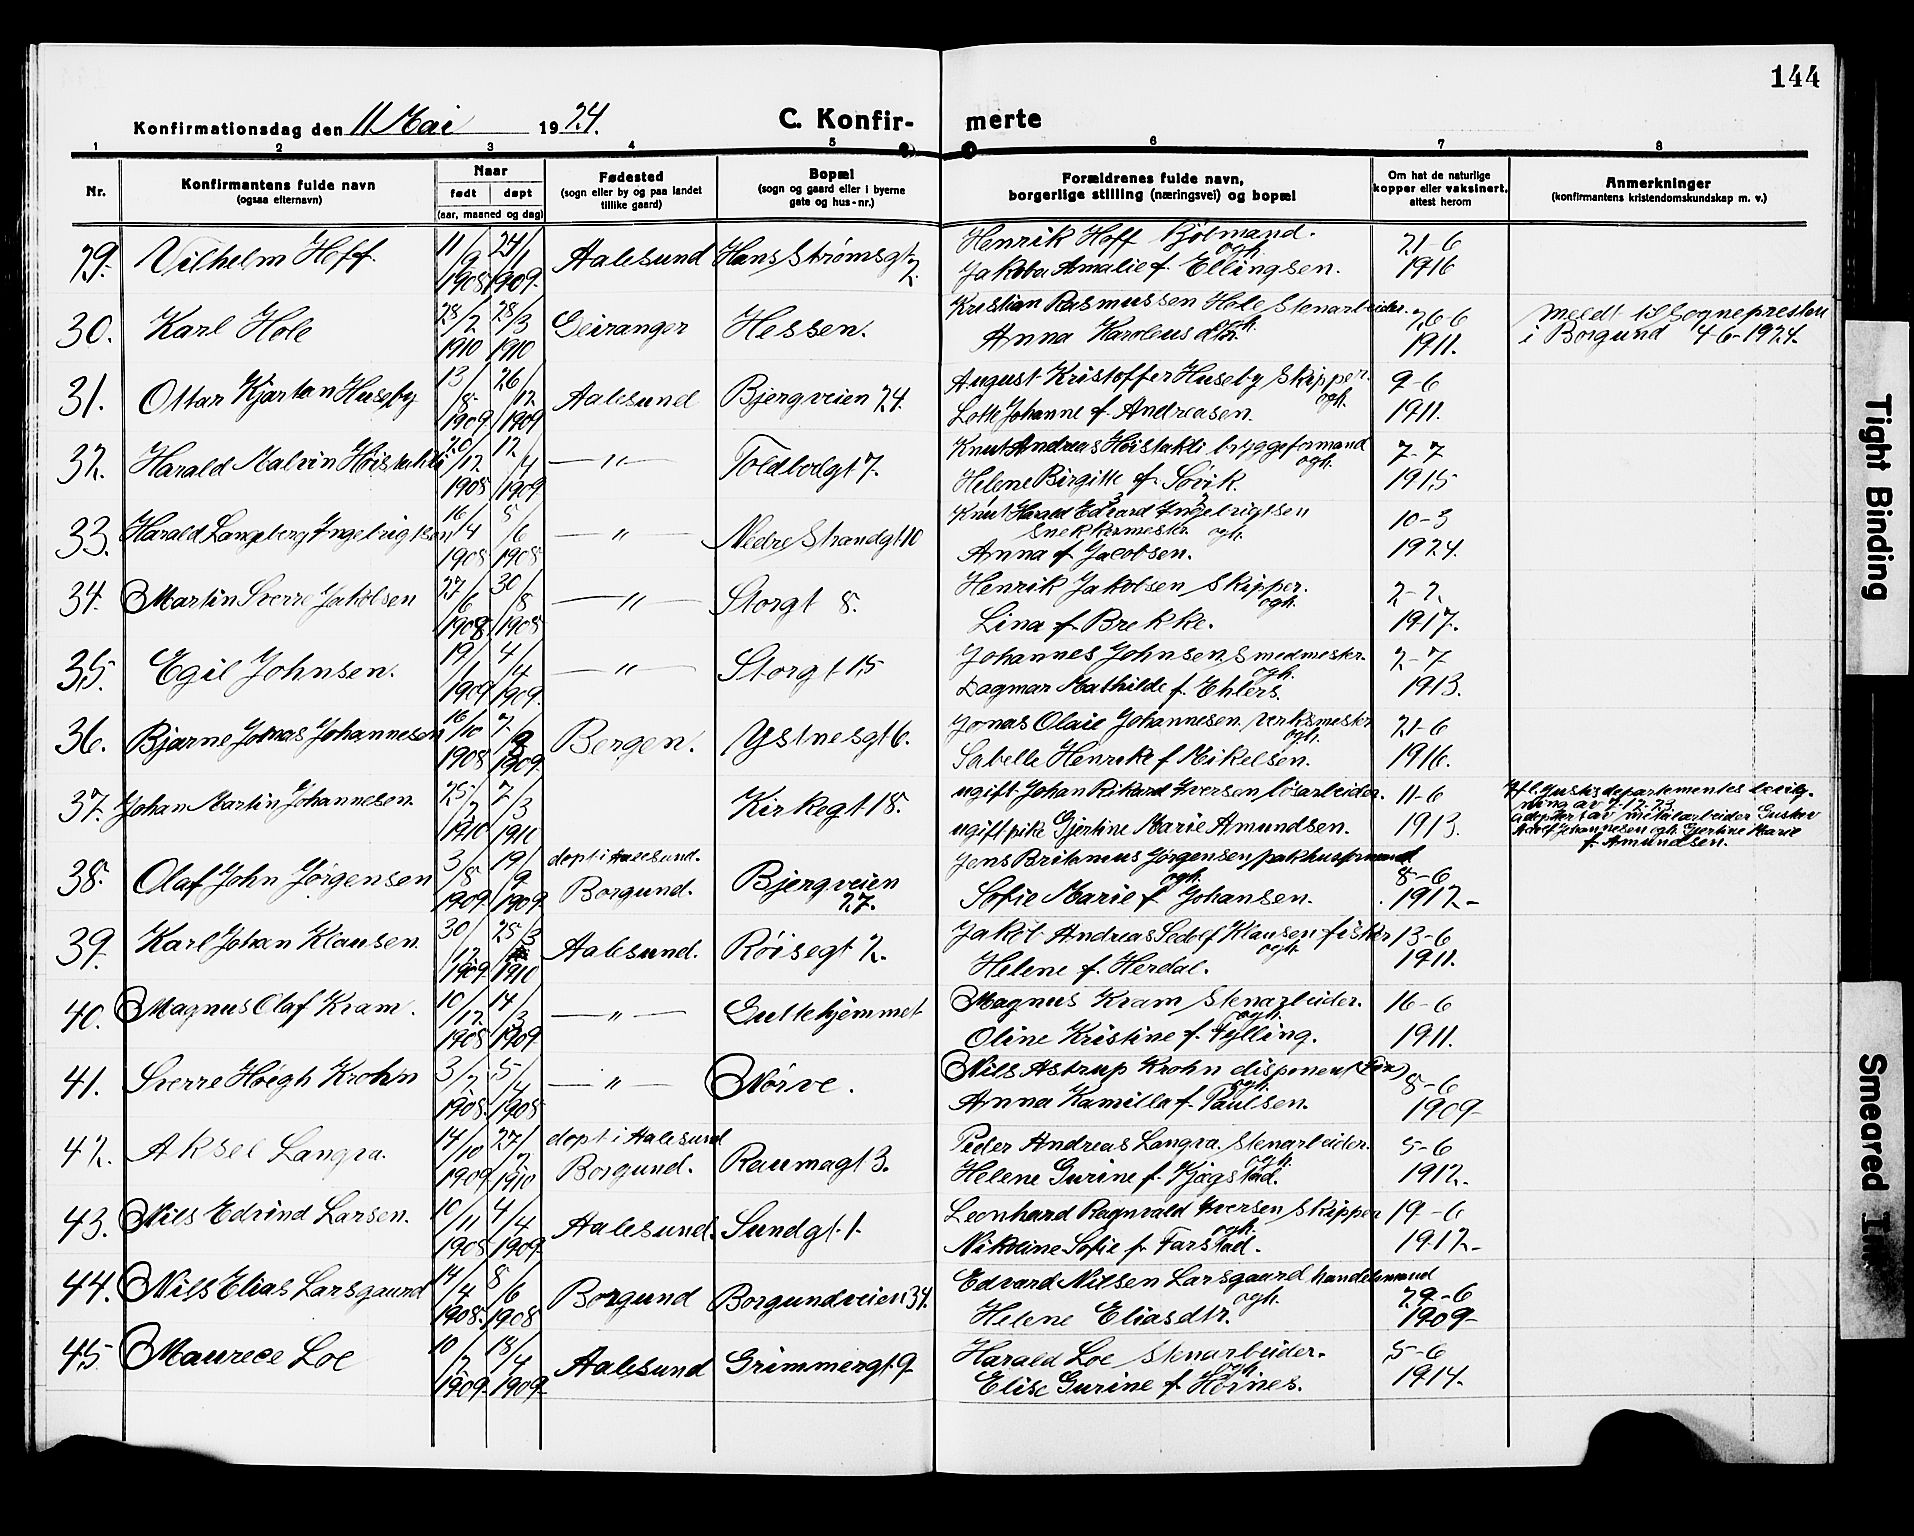 144
Konfirmationsdag den 11 Mai 1924.
C. Konfir-merte
1 2 3 4 5 6 7 8
Nr.
Konfirmantens fulde navn
(ogsaa efternavn)
Naar
født døpt
(aar, maaned og dag)
Fødested
(sogn eller by og paa landet
tillike gaard)
Bopæl
(sogn og gaard eller i byerne
gate og hus-nr.)
Forældrenes fulde navn,
borgerlige stilling (næringsvei) og bopæl
Om hat de naturlige
kopper eller vaksinert,
attest herom
Anmerkninger
(konfirmantens kristendomskundskap m. v.)
29. Vilhelm Hoff. 11/9 1908 24/1 1909. Aalesund Hans Strømsgt. 2. Henrik Hoff Bømand. ogh. 21-6
Jakoba Amalie f. Ellingsen. 1916
30. Karl Hole 28/2 1910 28/3 1910 Geiranger Hessen. Kristian Rasmussen Hole Stenarbeider. ogh. 26-6 meldt til sognepresten
Anna Karoleusdtr. 1911. i Borgund 4-6-1924.
31. Ottar Kjartan Huseby 13/8 1909 26/12 1909 Aalesund Bjergveien 24. August Kristoffer Huseby Skipper. ogh. 9-6
Lotte Johanne f. Andreasen. 1911.
32. Harald Malvin Høistakli 20/12 1908 12/4 1909 — " — Toldbodgt 7. Knut Andreas Høistakli bryggeformand ogh. 7-7
Helene Birgitte f. Søvik. 1915
33. Harald Langberg Ingebrigtsen 16/4 1908 5/6 1908 — " — Nedre Strandgt 10 Knut Harald Edvard Ingebrigtsen 10-3
Snekkermestr. ogh.
Anna f. Jacobsen. 1924.
34. Martin Sverre Jakobsen 27/6 1908 30/8 1908 — " — Storgt 8. Henrik Jakobsen Skipper. ogh. 2-2.
Lina f. Brekke. 1917.
35. Egil Johnsen. 19/1 1909 4/4 1909. — " — Storgt 15 Johannes Johnsen Smedmester. ogh. 2-7
Dagmar Mathilde f. Ehlers. 1913.
36. Bjarne Jonas Johannesen 16/10 1908 2/9 1909 Bergen. Ystnesgt 6. Jonas Olaie Johannesen verksmester ogh. 21-6
Sabelle Henrike f Mikelsen. 1916.
37. Johan Martin Johannesen. 25/2 1910 2/3 1910 Kirkegt 18. ugift Johan Rikard Iversen løsarbeider. 11-6
ugift pike Gjertine Marie Amundsen. 1913.
Ifl. Justisdepartementets bevilg-
ning av 7-12-23.
adoptert av metalarbeider Gustav
Adolf Johannesen ogh. Gjertine Marie
f. Amundsen.
38. Olaf John Jørgensen 3/8 1909. 19/9 1909 døpt i Aalesund. Borgund. Bjergveien 27. Jens Britanius Jørgensen pakhusformand ogh. 8-6
Sofie Marie f Johansen. 1912-
39. Karl Johan Klausen. 30/12 1909. 25/3 1910 Aalesund. Røisegt 2. Jakob Andreas Sedolf Klausen fisker ogh. 13-6
Helene f. Herdal. 1911.
40. Magnus Olaf Kram. 10/12 1908 14/3 1909 — " — Gultehjemmet Magnus Kram Stenarbeider. ogh. 16-6
Oline Kristine f. Fylling. 1911.
41. Sverre Høegh Krohn 3/2 1908. 5/4 1908 — " — Nørve. Nils Astrup Krohn disponent ogh. 8-6
Anna Kamilla f. Paulsen. 1909-
42. Aksel Langva. 14/10 1909 27/2 1910 døpt i Aalesund Borgund. Raumagt 3. Peder Andreas Langva. Stenarbeider. ogh. 5-6
Helene Gurine f. Kjøgstad. 1912.
43. Nils Edvind Larsen. 10/11 1908 4/4 1909. Aalesund. Sundgt. 1. Leonhard Ragnvald Iversen Skipper ogh. 19-6
Nikoline Sofie f. Farstad. 1912-
44. Nils Elias Larsgaard 14/4 1908. 8/6 1908 Borgund Borgundveien 34. Edvard Nilsen Larsgaard handelsmand ogh. 29-6
Helene Eliasdtr. 1909-
45. Maurece Loe 10/2 1909. 18/4 1909. Aalesund Grimmergt. 9 Harald Loe Stenarbeider. ogh. 5-6
Elise Gurine f. Hornes. 1914.
Tight Binding
Smeared Ink